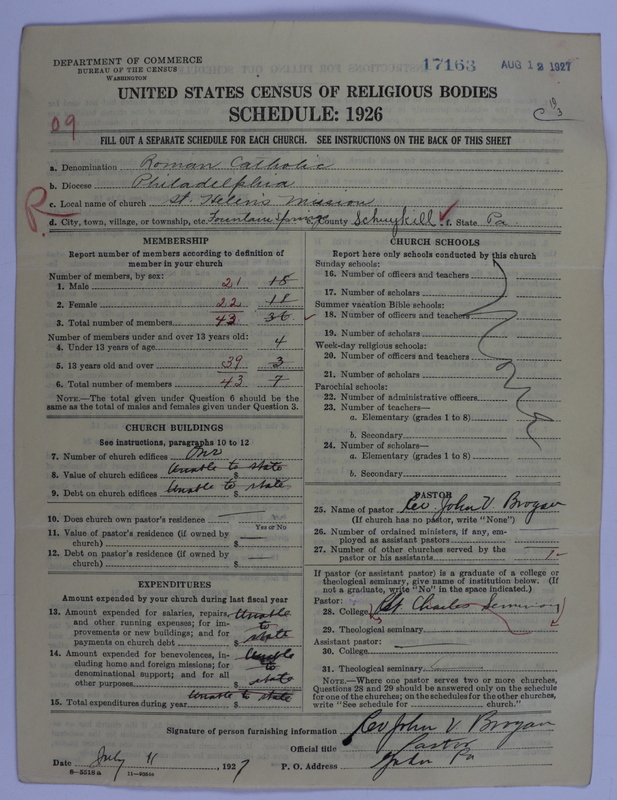 DEPARTMENT OF COMMERCE
BUREAU OF THE CENSUS
WASHINGTON
17163 AUG 12 1927
UNITED STATES CENSUS OF RELIGIOUS BODIES
SCHEDULE: 1926
09
FILL OUT A SEPARATE SCHEDULE FOR EACH CHURCH. SEE INSTRUCTIONS ON THE BACK OF THIS SHEET
a. Denomination Roman Catholic
b. Diocese Philadelphia
c. Local name of church St. Helens Mission
R
d. City, town, village, or township, etc. Fountain Springs e. County Schuylkill f. State Pa
MEMBERSHIP
Report number of members according to definition of
member in your church
Number of members, by sex:
1. Male 21 18
2. Female 22 18
3. Total number of members 43 36
Number of members under and over 13 years old:
4. Under 13 years of age 4
5. 13 years old and over 39 3
6. Total number of members 43 7
NOTE.—The total given under Question 6 should be
same as the total of males and females given under Question 3.
CHURCH BUILDINGS
See instructions, paragraphs 10 to 12
7. Number of church edifices One
8. Value of church edifices $ Unable to state
9. Debt on church edifices $ Unable to state
10. Does church own pastor's residence
Yes or No
11. Value of pastor's residence (if owned by
church) $
12. Debt on pastor's residence (if owned by
church) $
EXPENDITURES
Amount expended by your church during last fiscal year
13. Amount expended for salaries, repairs, Unable
and other running expenses; for im- to
provements or new buildings; and for state
payments on church debt $
14. Amount expended for benevolences, in- Unable
cluding home and foreign missions; for to
denominational support; and for all state
other purposes $
15. Total expenditures during year Unable to state
CHURCH SCHOOLS
Report here only schools conducted by this church
Sunday schools:
16. Number of officers and teachers
17. Number of scholars
Summer vacation Bible schools:
18. Number of officers and teachers
19. Number of scholars
Week-day religious schools:
20. Number of officers and teachers
21. Number of scholars
Parochial schools:
22. Number of administrative officers
23. Number of teachers—
a. Elementary (grades 1 to 8)
b. Secondary
24. Number of scholars—
a. Elementary (grades 1 to 8)
b. Secondary
PASTOR
25. Name of pastor Rev John V Brogan
(If church has no pastor, write "None")
26. Number of ordained ministers, if any, em-
ployed as assistant pastors
27. Number of other churches served by the
pastor or his assistants 1
If pastor (or assistant pastor) is a graduate of a college or
theological seminary, give name of institution below. (If
not a graduate, write "No" in the space indicated.)
Pastor:
28. College St Charles Seminary
29. Theological seminary
Assistant pastor:
30. College
31. Theological seminary
NOTE.—Where one pastor serves two or more churches,
Questions 28 and 29 should be answered only on the schedule
for one of the churches; on the schedules for the other churches,
write "See schedule for church."
Signature of person furnishing information Rev John V Brogan
Official title Pastor
Date July 11, 1927 P. O. Address Pa
8—5518a 11—9364a